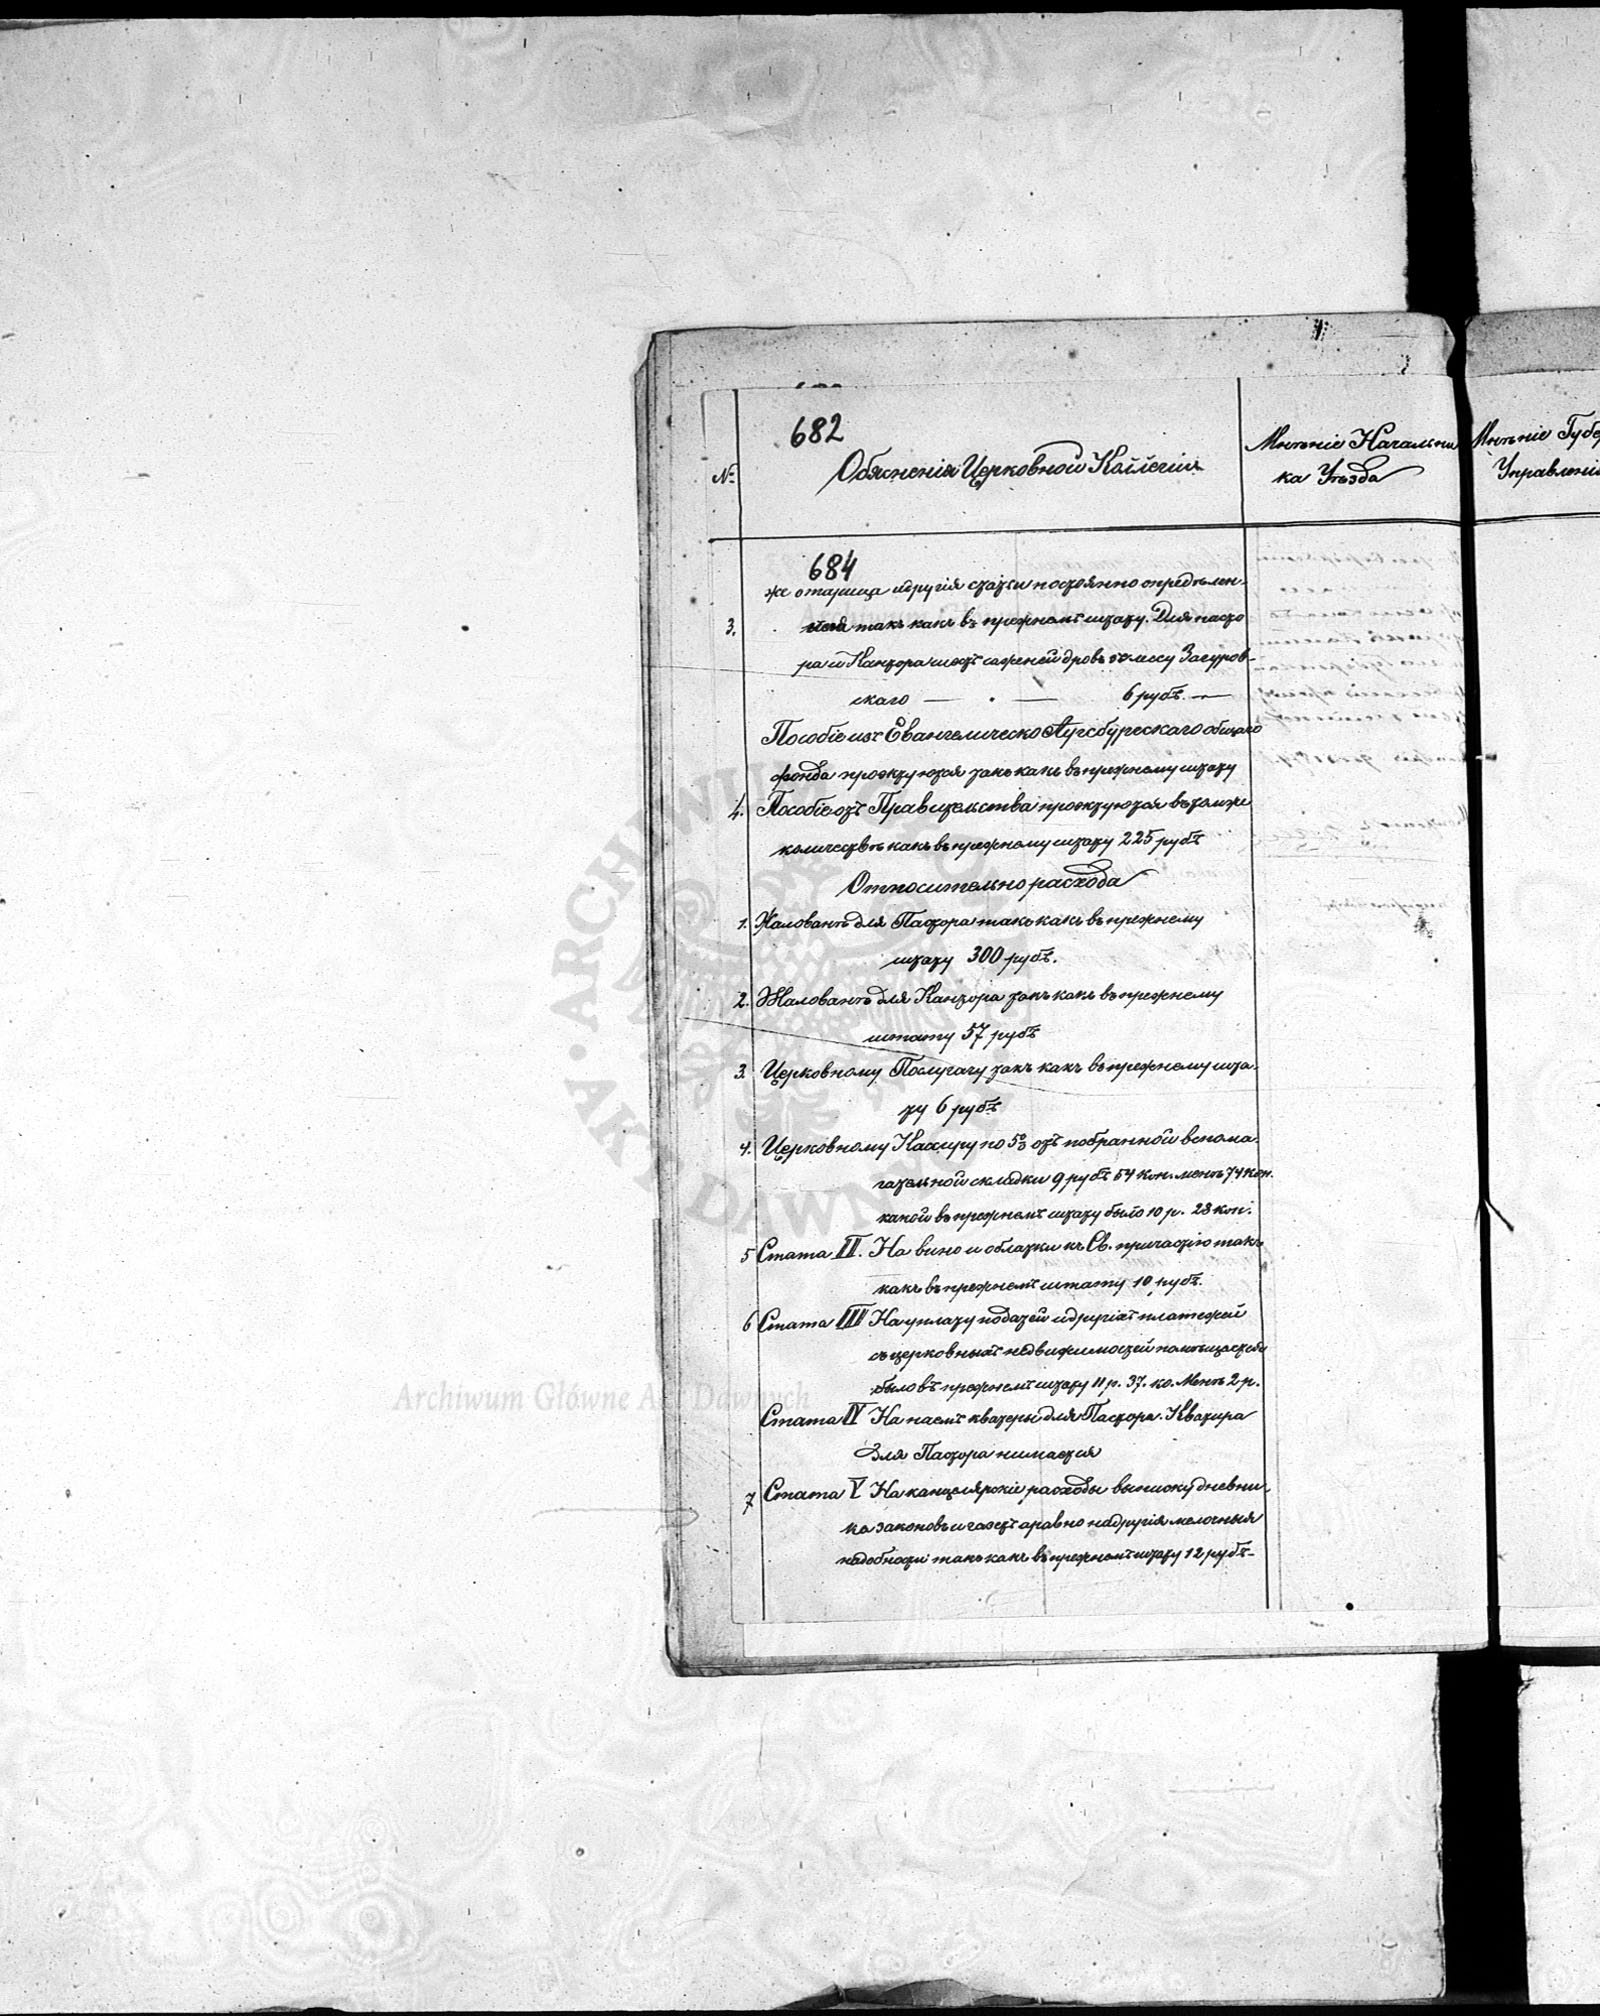 682
№
Обясненія Церковной Коллегіи
Мнѣніе Начальни
ка Уѣзда
Мнѣніе Губе
Управлені
684
же отарица идругія статьи постоянно опредѣлен-
3. такъ какъ въ прежнемъ штату. Для пасто
ра и Кантора шесть саженей дровъ Загуров-
скаго — . — 6 рубъ. —
Пособіе изъ Евангелическо Аугсбургскаго общаго
фонда проэктуютая такъ какъ въ прежнему штату
4. Пособіе отъ Правительства проэктуютая въ томъже
количествѣ какъ въ прежнему штату 225 рубъ
Относительно расхода
1. Жалованѣ для Пастора такъ какъ въ прежнему
штату 300 рубъ.
2. Жалованѣ для Кантора такъ какъ въ прежнему
штату 57 рубъ
3. Церковному Послугачу такъ какъ въ прежнему шта-
ту 6 рубъ
4. Церковному Кассиру по 5% отъ побранной вспома-
гательной складки 9 рубъ 54 коп. менѣ 74 коп.
какой въ прежнемъ штату было 10 р. 28 коп.
5 Стата II. На вино и облатки къ Св. причастію такъ
какъ въ прежнемъ штату 10 рубъ.
6 Стата III На уплату податей идругихъ платежей
съ церковныхъ недвижимостей
было въ прежнемъ штату 11 р. 37. ко. Менѣ 2 р.
Стата IV На наемъ кватеры для Пастора. Кватира
для Пастора нимается
7 Стата V На канцелярскіе расходы выписку дневни-
ка законовъ и газетъ аравно надругія мелочныя
надобности такъ какъ въ прежнемъ штату 12 рубъ-
Archiwum Główne Akt Dawnych
ARCHIWUM
AKT DAWNYCH